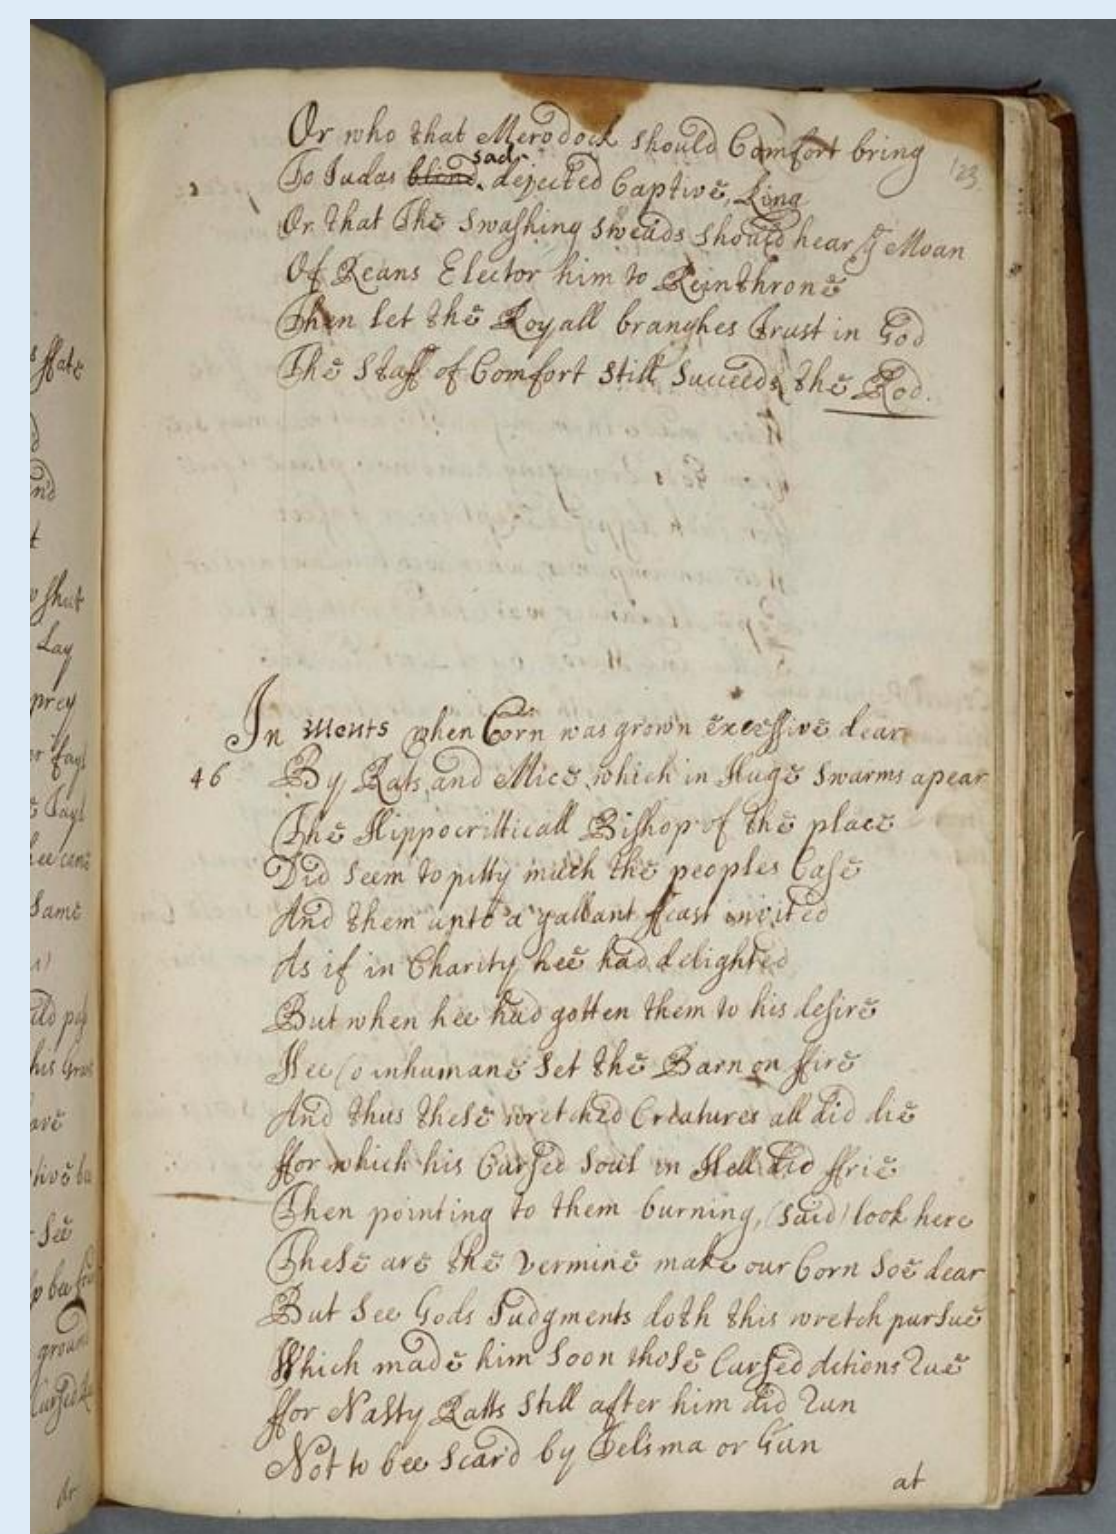 Or who that Merodock should Comfort bring
123
To Judas blind sad dejected Captive King
Or that The Swashing Sweads should hear ye Moan
Of Reans Elector him to Reinthrone
Then let the Royall branches trust in God
The Staff of Comfort still Succeeds the Rod.
In Ments when Corn was grown excessive dear
46 By Rats, and Mice, which in Huge Swarms apear
The Hippocritticall Bishop of the place
Did Seem to pitty much the peoples Case
And them unto a gallant ffeast invited
As if in Charity hee had delighted
But when hee had gotten them to his desire
Hee (o inhumane) Set the Barn on ffire
And thus these wretched Creatures all did die
ffor which his Cursed Soul in Hell did ffrie
Then pointing to them burning, (said) look here
These are the Vermine make our Corn Soe dear
But See Gods Judgments doth this wretch pursue
Which made him Soon those Cursed actions Rue
ffor Nasty Ratts Still after him did Run
Not to bee Scar'd by Telisma or Gun
at